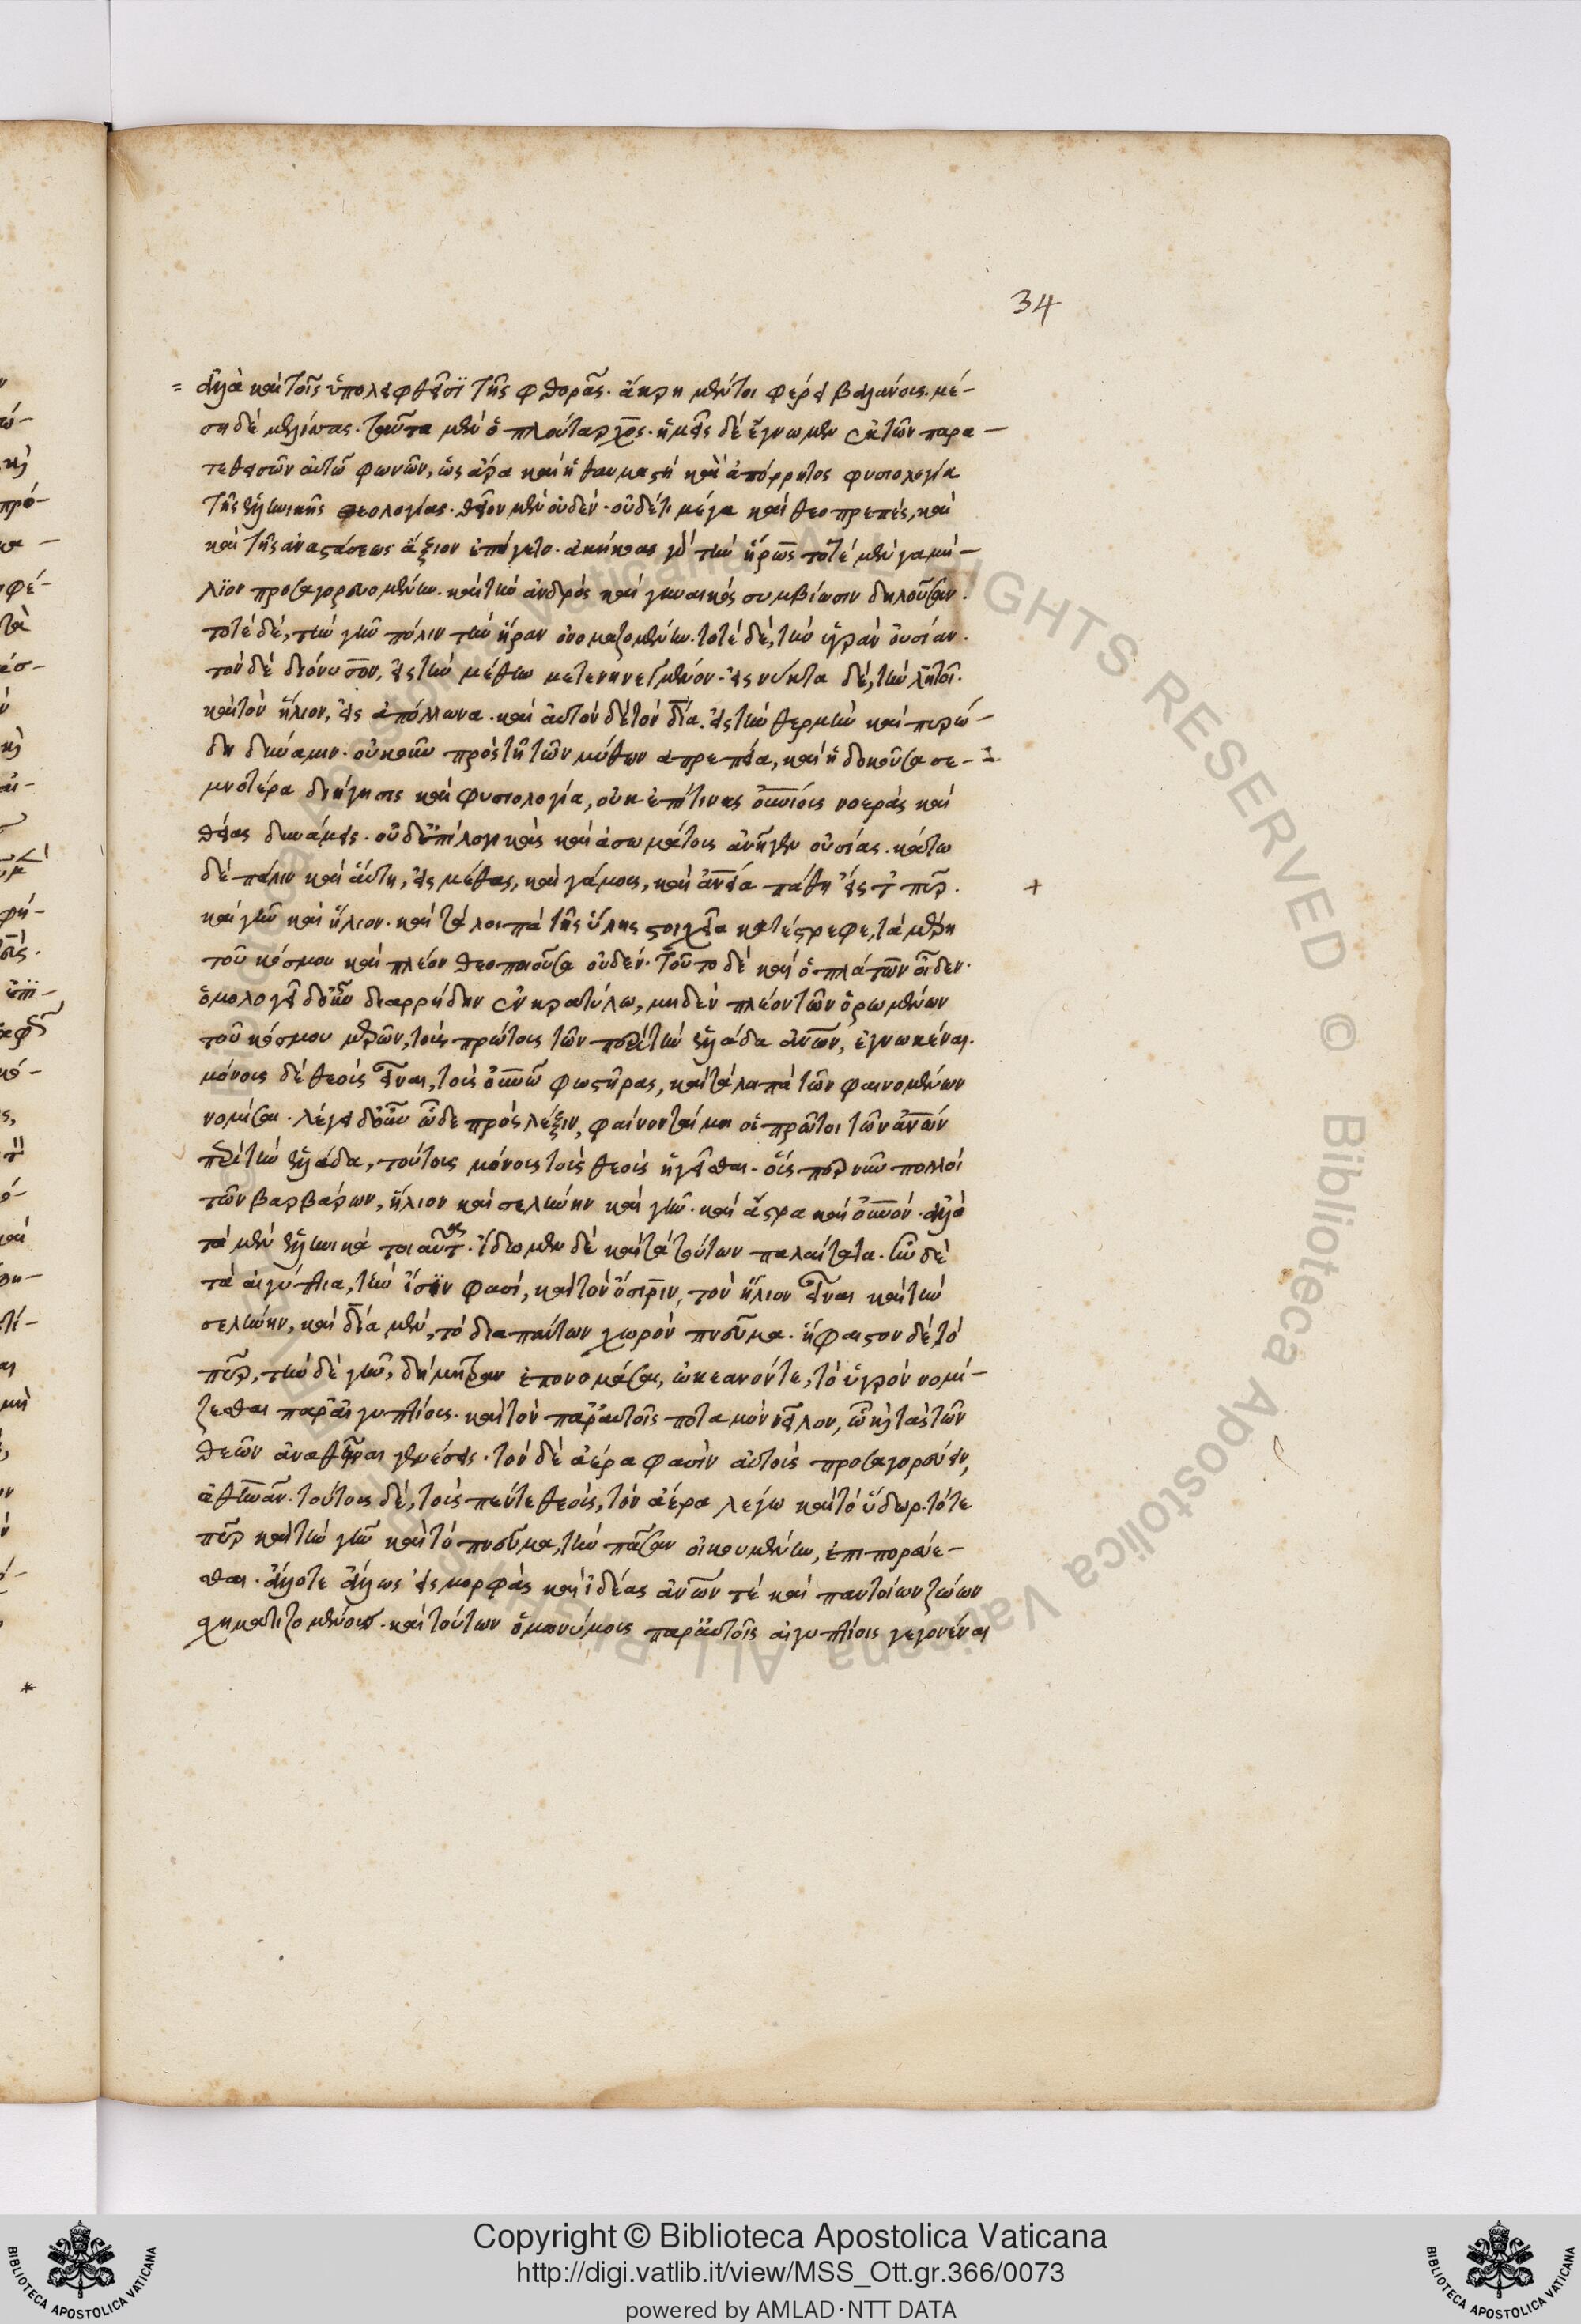 34
ἀλλὰ καὶ τοῖς ὑπολειφθεῖσϊ τῆς φθορᾶς. ἄκρη μέντοι φέρει βαλάνοις. μέ-
ση δὲ μελίσσας. ταῦτα μὲν ὁ πλούταρχος. ἡμεῖς δὲ ἔγνωμεν ἐκ τῶν παρα-
τεθεισῶν αὐτῶ φωνῶν, ὡς ἄρα καὶ ἡ θαυμαστὴ καὶ ἀπόρρητος φυσιολογία
τῆς ἑλληνικῆς θεολογίας. θεῖον μὲν οὐδὲν. οὐδέτι μέγα καὶ θεοπρεπὲς, καὶ
καὶ τῆς ἀναστάσεως ἄξιον ἐπήγετο. ἀκήκοας γὰρ τὴν ἥραν τοτὲ μὲν γαμή-
λϊον προσαγορευομένην. καὶ τὴν ἀνδρὸς καὶ γυναικὸς συμβίωσιν δηλοῦσαν.
τοτὲ δὲ, τὴν γῆν πάλιν τὴν ἥραν ὀνομαζομένην. τοτὲ δὲ, τὴν ὑγρὰν οὐσίαν.
τὸν δὲ διόνυσον, εἰς τὴν μέθην μετενηνεγμένον. εἰς νύκτα δὲ, τὴν λητοῖ.
καὶ τὸν ἥλιον, εἰς ἀπόλλωνα. καὶ αὐτὸν δὲ τὸν δία. εἰς τὴν θερμὴν καὶ πυρώ-
δη δύναμιν. οὐκοῦν πρὸς τῆ τῶν μύθων ἀπρεπεία, καὶ ἡ δοκοῦσα σε-
μνοτέρα διήγησις καὶ φυσιολογία, οὐκ ἐπί τινας οὐρανίοις νοερὰς καὶ
θείας δυνάμεις. οὐδ' ἐπὶ λογικὰς καὶ ἀσωμάτοις ἀνῆγεν οὐσίας. κάτω
δὲ πάλιν καὶ αὕτη, εἰς μέθας, καὶ γάμοις, καὶ ἀνθρώπεια πάθη εἴς τε πῦρ.
καὶ γῆν καὶ ἥλιον. καὶ τὰ λοιπὰ τῆς ὕλης στοιχεῖα κατέστρεφε, τὰ μέρη
τοῦ κόσμου καὶ πλέον θεοποιοῦσα οὐδέν. τοῦτο δὲ καὶ ὁ πλάτων οἶδεν.
ὁμολογεῖ δ' οὖν διαρρήδην ἐν κρατύλω, μηδὲν πλέον τῶν ὁρωμένων
τοῦ κόσμου μερῶν, τοὺς πρώτοις τῶν περὶ τὴν ἑλλάδα ἀνθρώπων, ἐγνωκέναι.
μόνοις δὲ θεοὺς εἶναι, τοὺς οὐρανοῦ φωστῆρας, καὶ τὰ λοιπὰ τῶν φαινομένων
νομίσαι. λέγει δ' οὖν ὧδε πρὸς λέξιν, φαίνονταί μοι οἱ πρῶτοι τῶν ἀνθρώπων
περὶ τὴν ἑλλάδα, τούτοις μόνοις τοὺς θεοὺς ἡγεῖσθαι. οὕσπερ νῦν πολλοὶ
τῶν βαρβάρων, ἥλιον καὶ σελήνην καὶ γῆν. καὶ ἄστρα καὶ οὐρανόν. ἀλλὰ
τὰ μὲν ἑλληνικὰ τοιαῦτα. ἴδωμεν δὲ καὶ τὰ τούτων παλαίτατα. ἦν δὲ
τὰ αἰγύπτια, τὴν ἴσϊν φασὶ, καὶ τὸν ὄσιριν, τὸν ἥλιον εἶναι καὶ τὴν
σελήνην, καὶ δία μὲν, τὸ διαπάντων χωροῦν πνεῦμα. ἥφαιστον δὲ τὸ
πῦρ, τὴν δὲ γῆν, δήμητραν ἐπονομάσαι, ὠκεανόν τε, τὸ ὑγρὸν νομί-
ζεσθαι παρ' αἰγυπτίοις. καὶ τὸν παρ' αὐτοῖς ποταμὸν νεῖλον, ᾧ καὶ τὰς τῶν
θεῶν ἀναθεῖναι γενέσεις. τὸν δὲ ἀέρα φασὶν αὐτοὺς προσαγορεύειν,
ἀθηνᾶν. τούτοις δὲ, τοὺς πέντε θεοὺς, τὸν ἀέρα λέγω καὶ τὸ ὕδωρ. τό τε
πῦρ καὶ τὴν γῆν καὶ τὸ πνεῦμα, τὴν πᾶσαν οἰκουμένην, ἐπιπορεύε-
σθαι. ἄλλοτε ἄλλως εἰς μορφὰς καὶ ἰδέας ἀνθρώπων τὲ καὶ παντοίων ζώων
σχηματιζομένοις. καὶ τούτων ὁμωνύμοις παρ' αὐτοῖς αἰγυπτίοις γεγονέναι
Copyright © Biblioteca Apostolica Vaticana
http://digi.vatlib.it/view/MSS_Ott.gr.366/0073
powered by AMLAD·NTT DATA